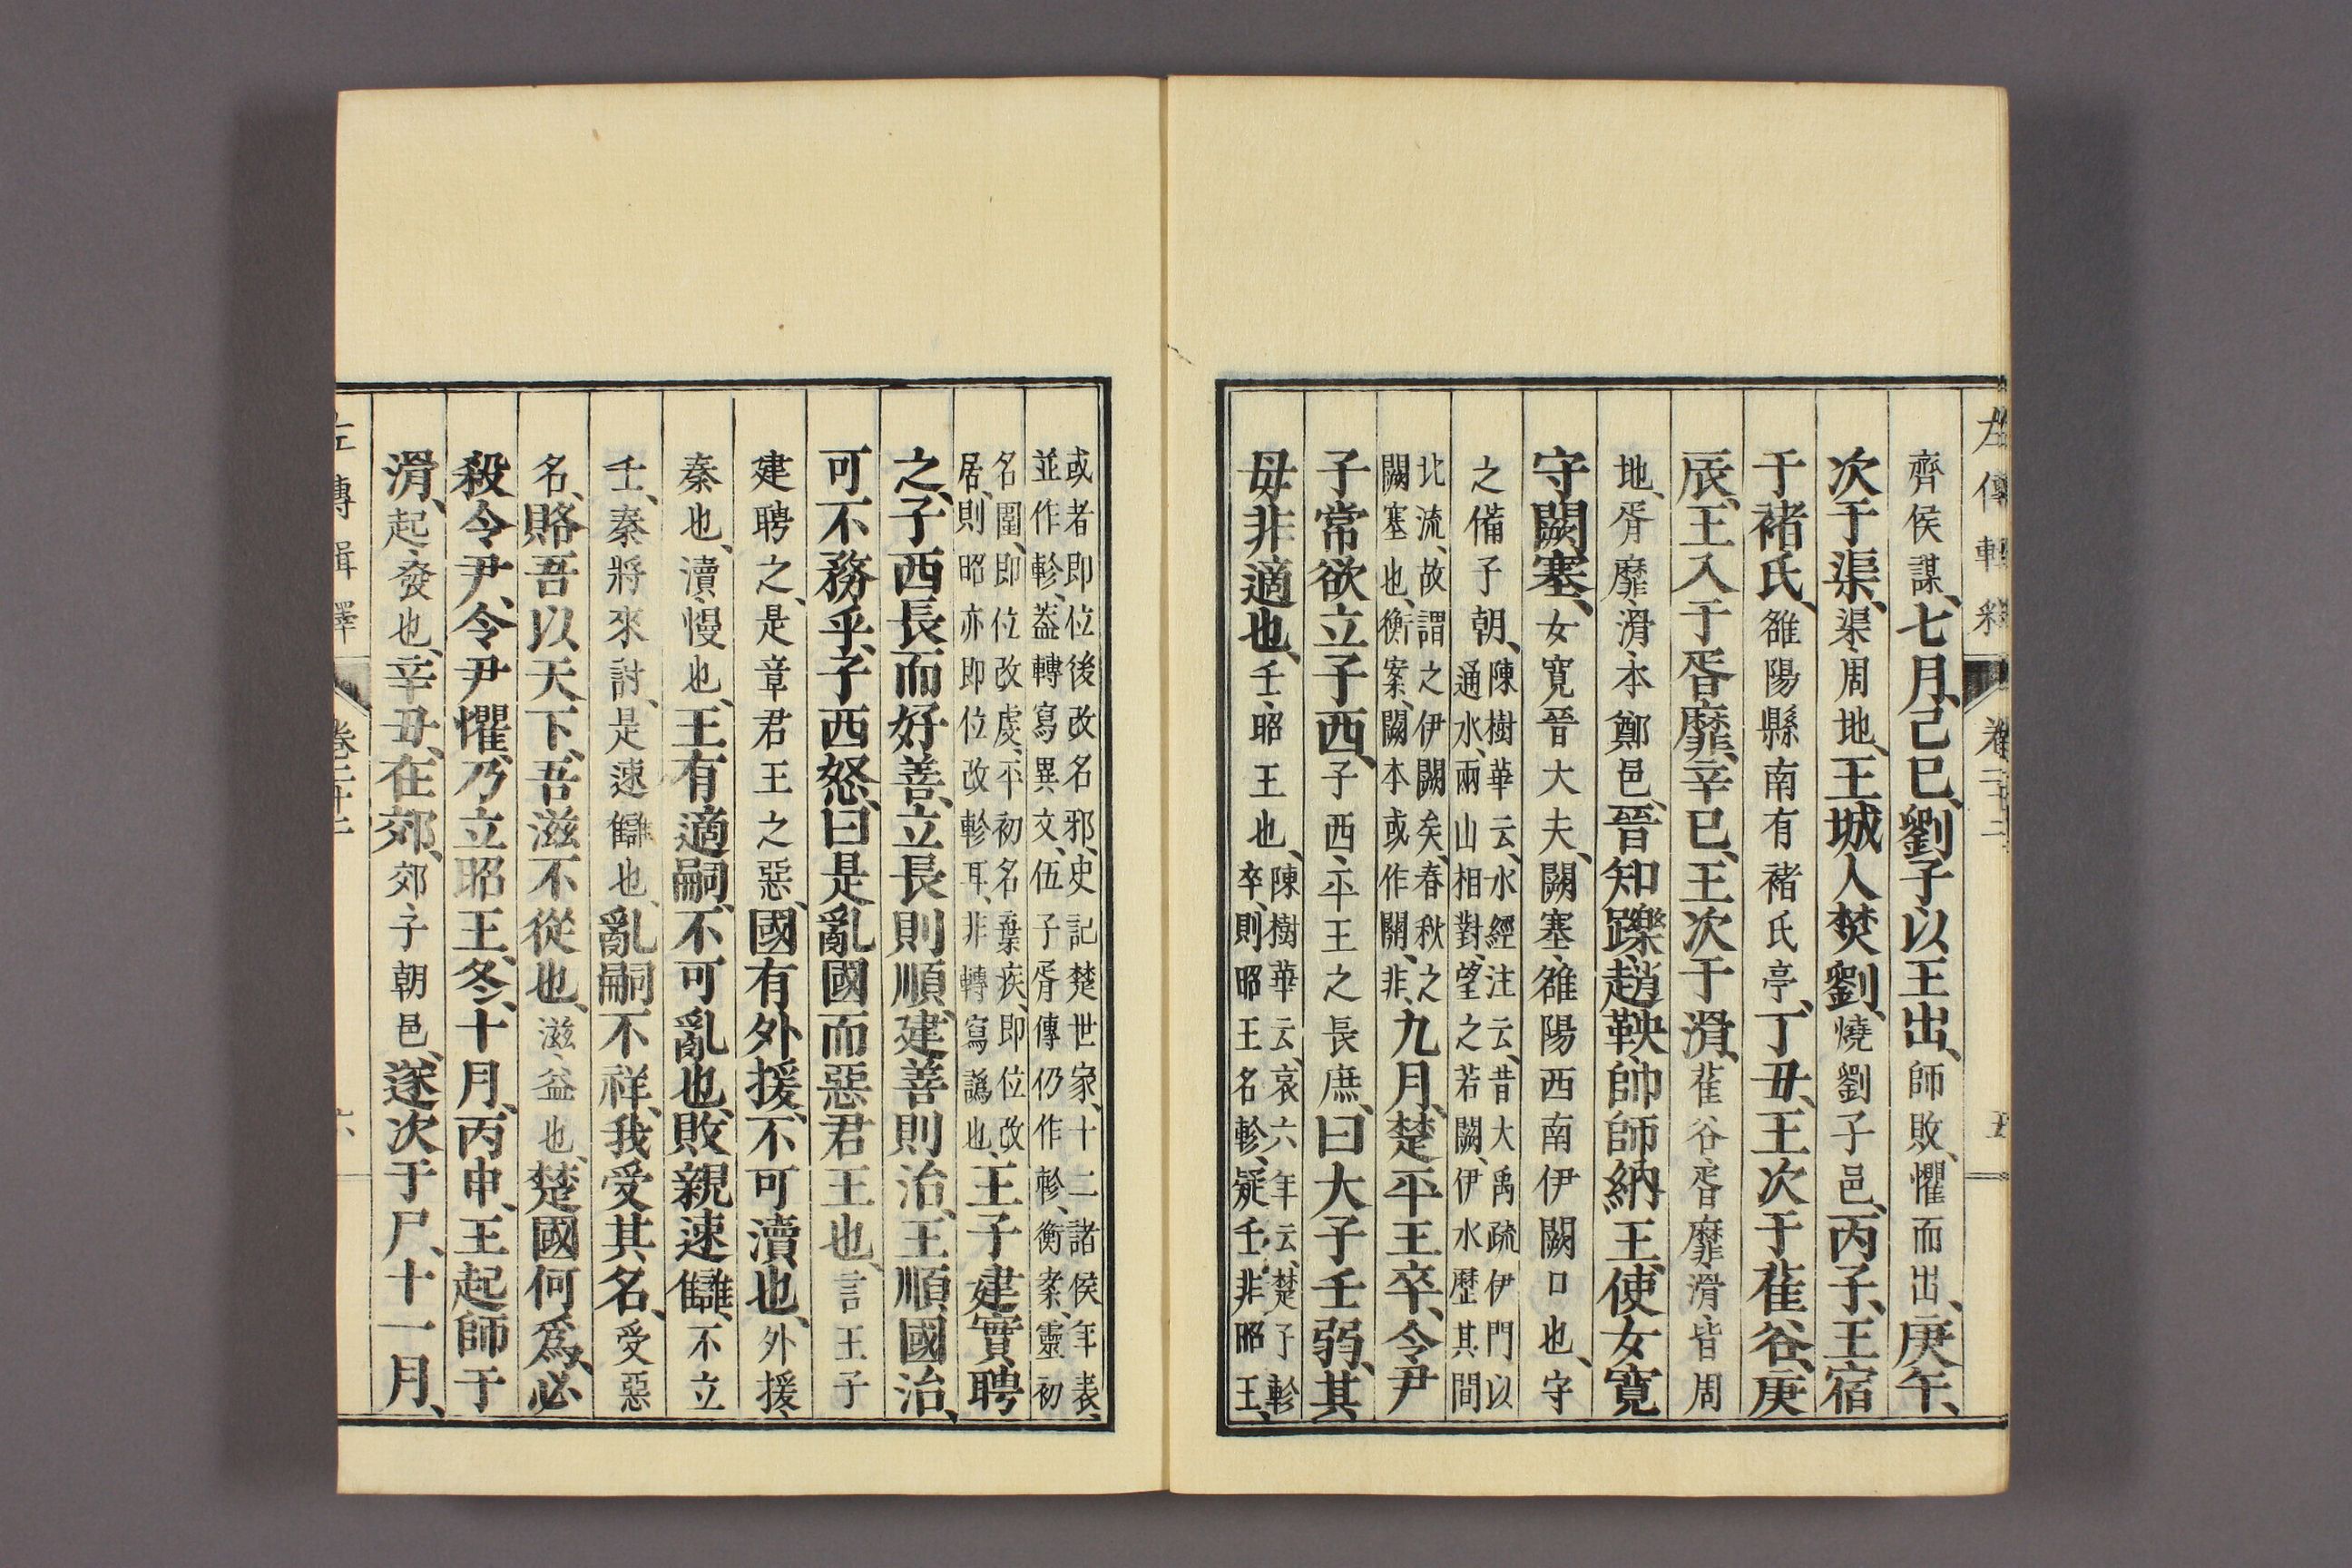 左傳輯釋 卷二十二 五
齊侯謀、七月、己巳、劉子以王出、師敗、懼而出、庚午、
次于渠、渠、周地、王城人焚劉、燒劉子邑、丙子、王宿
于褚氏、雒陽縣南有褚氏亭、丁丑、王次于萑谷、庚
辰、王入于胥靡、辛巳、王次于滑、萑谷、胥靡、滑、皆周
地、胥靡、滑、本鄭邑、晉知躒、趙鞅、帥師納王、使女寬
守闕塞、女寬晉大夫、闕塞、雒陽西南伊闕口也、守
之備子朝、陳樹華云、水經注云、昔大禹疏伊門以
通水、兩山相對、望之若闕、伊水歷其間
北流、故謂之伊闕矣、春秋之
闕塞也、衡案、闕本或作關、非、九月、楚平王卒、令尹
子常欲立子西、子西、平王之長庶、曰大子壬弱、其
母非適也、壬、昭王也、陳樹華云、哀六年云、楚子軫
卒、則昭王名軫、疑壬、非昭王、
或者即位後改名邪、史記楚世家、十二諸侯年表、
並作軫、蓋轉寫異文、伍子胥傳仍作軫、衡案、靈初
名圍、即位改虔、平初名棄疾、即位改
居、則昭亦即位改軫耳、非轉寫譌也、王子建實聘
之、子西長而好善、立長則順、建善則治、王順、國治、
可不務乎、子西怒、曰是亂國而惡君王也、言王子
建聘之、是章君王之惡、國有外援、不可瀆也、外援、
秦也、瀆、慢也、王有適嗣、不可亂也、敗親速讎、不立
壬、秦將來討、是速讎也、亂嗣不祥、我受其名、受惡
名、賂吾以天下、吾滋不從也、滋、益也、楚國何爲、必
殺令尹、令尹懼、乃立昭王、冬、十月、丙申、王起師于
滑、起、發也、辛丑、在郊、郊、子朝邑、遂次于尸、十一月、
左傳輯釋 卷二十二 六